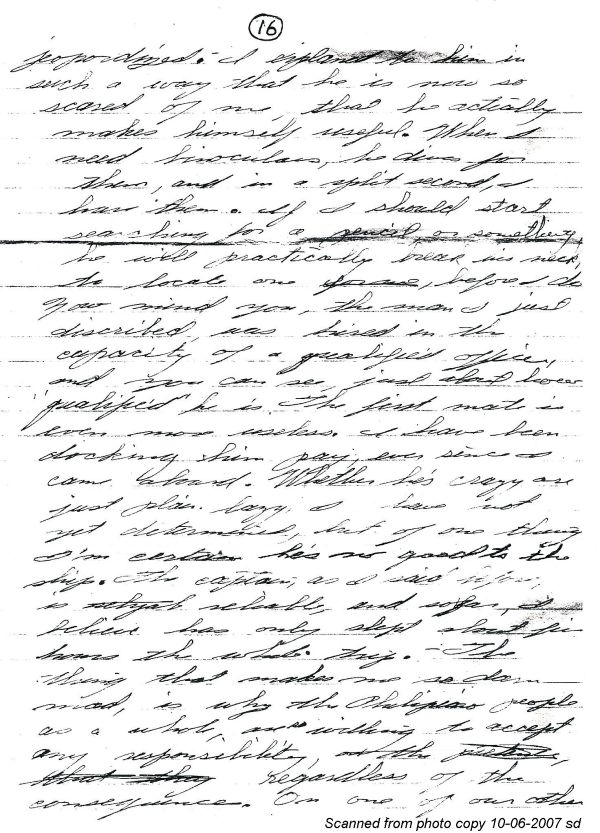 16
jeopordized. - I expland to him in
such a way that he is now so
scared of me, that he actually
makes himself useful. When I
need binoculars, he dives for
them, and in a split second, I
have them. If I should start
searching for a pencil or something,
he will practically break his neck,
to locate one, before I do
now mind you, the man I just
discribed, was hired in the
capacity of a qualified officer,
and you can see, just how
"qualified" he is. The first mate is
even more useless. I have been
docking him pay ever since I
came aboard. Whether he's crazy are
just plain lazy, I have not
yet determined, but of one thing
I'm certain he's no good to the
ship. The captain, as I said before,
is reliable, and sofar, I
believe has only slept about five
hours the whole trip. - The
thing that makes me so darn
mad, is why the Philipino people
as a whole, are willing to accept
any responsibility,
Regardless of the
consequence. On one of our other
Scanned from photo copy 10-06-2007 sd